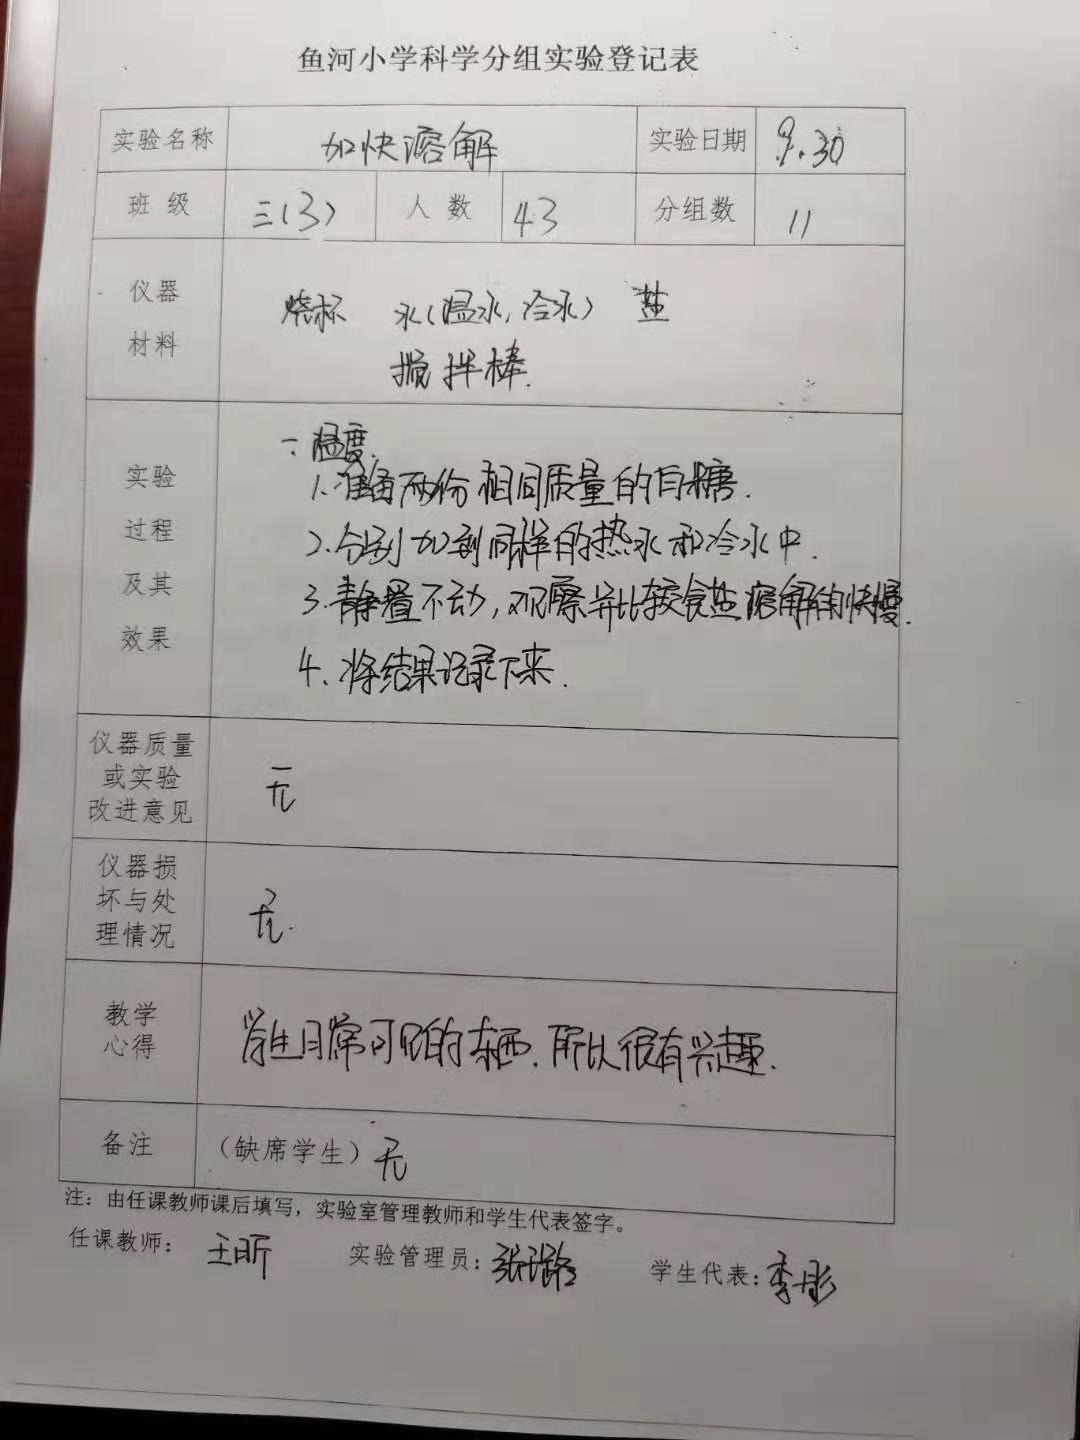 鱼河小学科学分组实验登记表
实验名称 加快溶解 实验日期 9.30
班 级 三(3) 人 数 43 分组数 11
仪器
材料
烧杯 水(温水,冷水) 盐
搅拌棒.
实验
过程
及其
效果
一温度.
1.准备两份相同质量的白糖.
2.分别加到同样的热水和冷水中.
3.静置不动,观察并比较食盐溶解的快慢.
4.将结果记录下来.
仪器质量
或实验
改进意见
无
仪器损
坏与处
理情况
无.
教学
心得
学生日常可见的东西.所以很有兴趣.
备注 (缺席学生) 无
注:由任课教师课后填写,实验室管理教师和学生代表签字。
任课教师: 王昕 实验管理员: 张璐 学生代表: 李彤